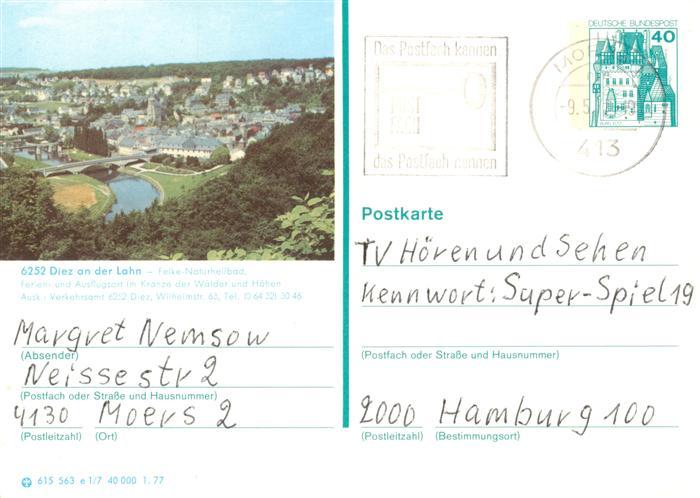 Das Postfach kennen
das Postfach nennen
DEUTSCHE BUNDESPOST
40
413
6252 Diez an der Lahn – Felke-Naturheilbad,
Ferien- und Ausflugsort im Kranze der Wälder und Höhen
Ausk.: Verkehrsamt 6252 Diez, Wilhelmstr. 63, Tel. (0 64 32) 30 46
Margret Nemsow
(Absender)
Neissestr 2
(Postfach oder Straße und Hausnummer)
4130 Moers 2
(Postleitzahl) (Ort)
615 563 e 1/7 40 000 1. 77
Postkarte
TV Hören und Sehen
Kennwort: Super-Spiel 19
(Postfach oder Straße und Hausnummer)
2000 Hamburg 100
(Postleitzahl) (Bestimmungsort)